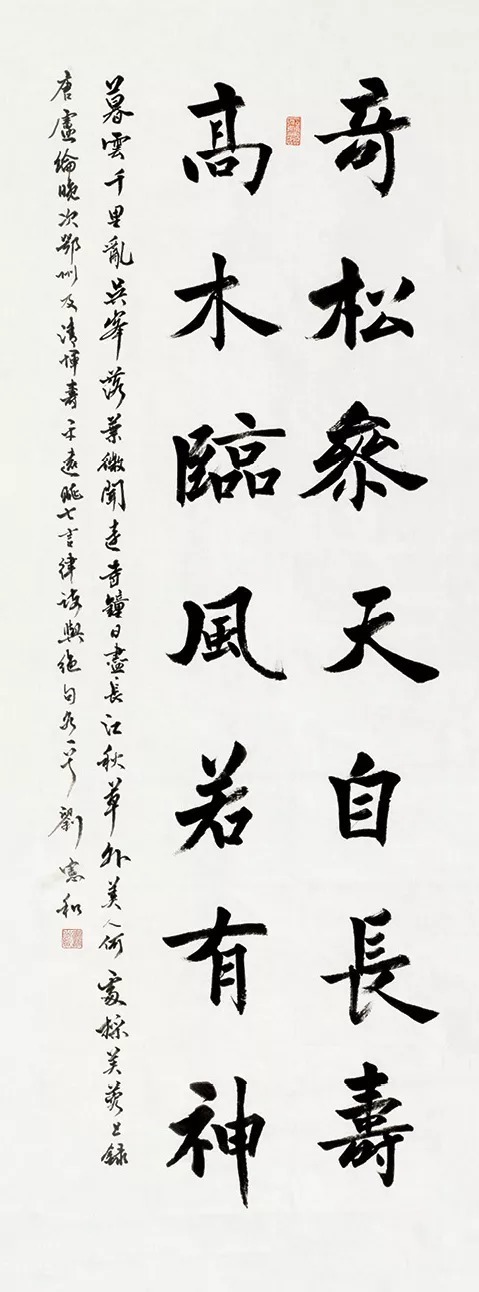 竒松叅天自長壽
髙木臨風若有神
暮雲千里亂吳峯落葉微聞遠寺鐘日盡長江秋草外美人何處採芙蓉上錄
唐盧綸晚次鄂州及清惲壽平遠眺七言律詩與絕句各一首劉憲和